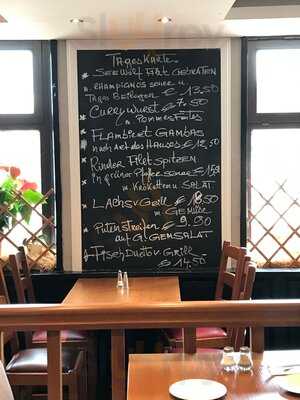 Tages Karte
* Seewolf Filet Gebraten
m. Champignos u.
Tages Beilagen € 13.50
* Currywurst € 7.50
u. Pommes Frites
* Flambiert Gambas
nach art des Hauses € 12,50
* Rinder Filet Spitzen
in grüner Pfeffer € 15.
m. Kroketten u SALAT
* LACHS v. Grill €
m. GEMÜSE
* Puten streifen € 9.30
auf G. GEMSALAT
* Fisch Duett v. Grill
€ 14.50